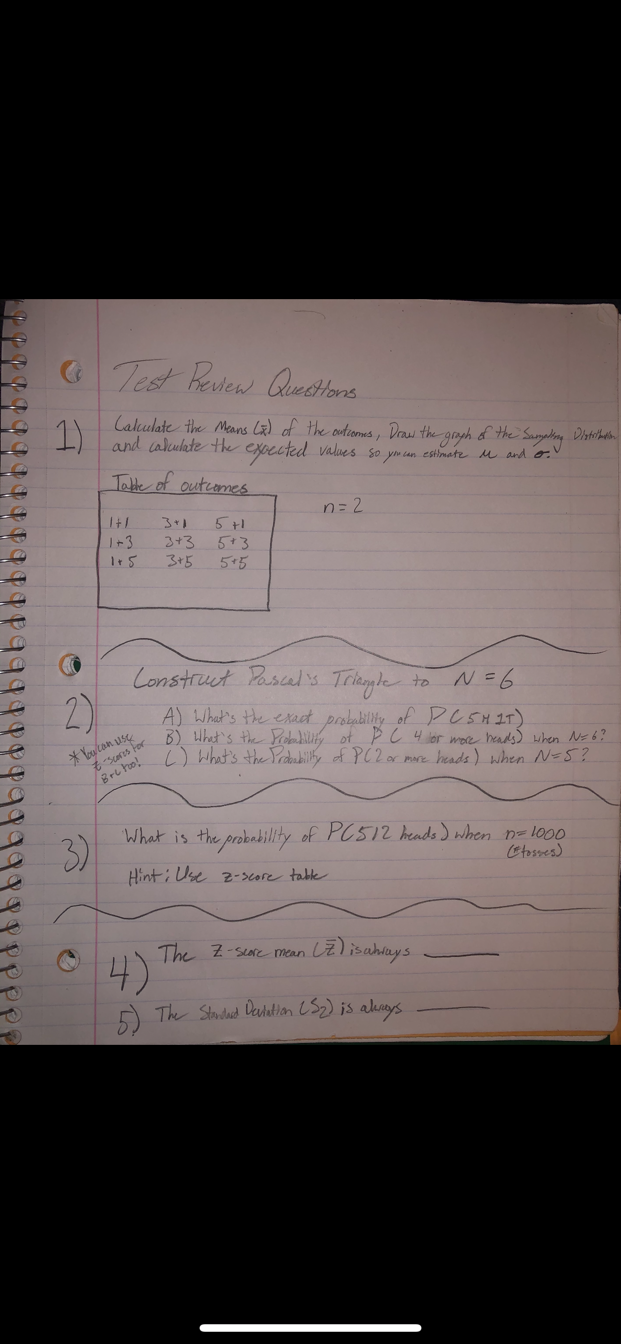 Test Review Questions
1) Calculate the Means (x̄) of the outcomes, Draw the graph of the Sampling Distribution
and calculate the expected values so you can estimate μ and σ.
Table of outcomes
n=2
1+1 3+1 5+1
1+3 3+3 5+3
1+5 3+5 5+5
Construct Pascal's Triangle to N=6
2)
A) What's the exact probability of P(5H 1T)
B) What's the Probability of P( 4 or more heads) when N=6?
C) What's the Probability of P(2 or more heads) when N=5?
* You can use
z-scores for
B+C too!
3) What is the probability of P(512 heads) when n=1000
(# tosses)
Hint: Use z-score table
4) The Z-score mean (z̄) is always
5) The Standard Deviation (Sz) is always